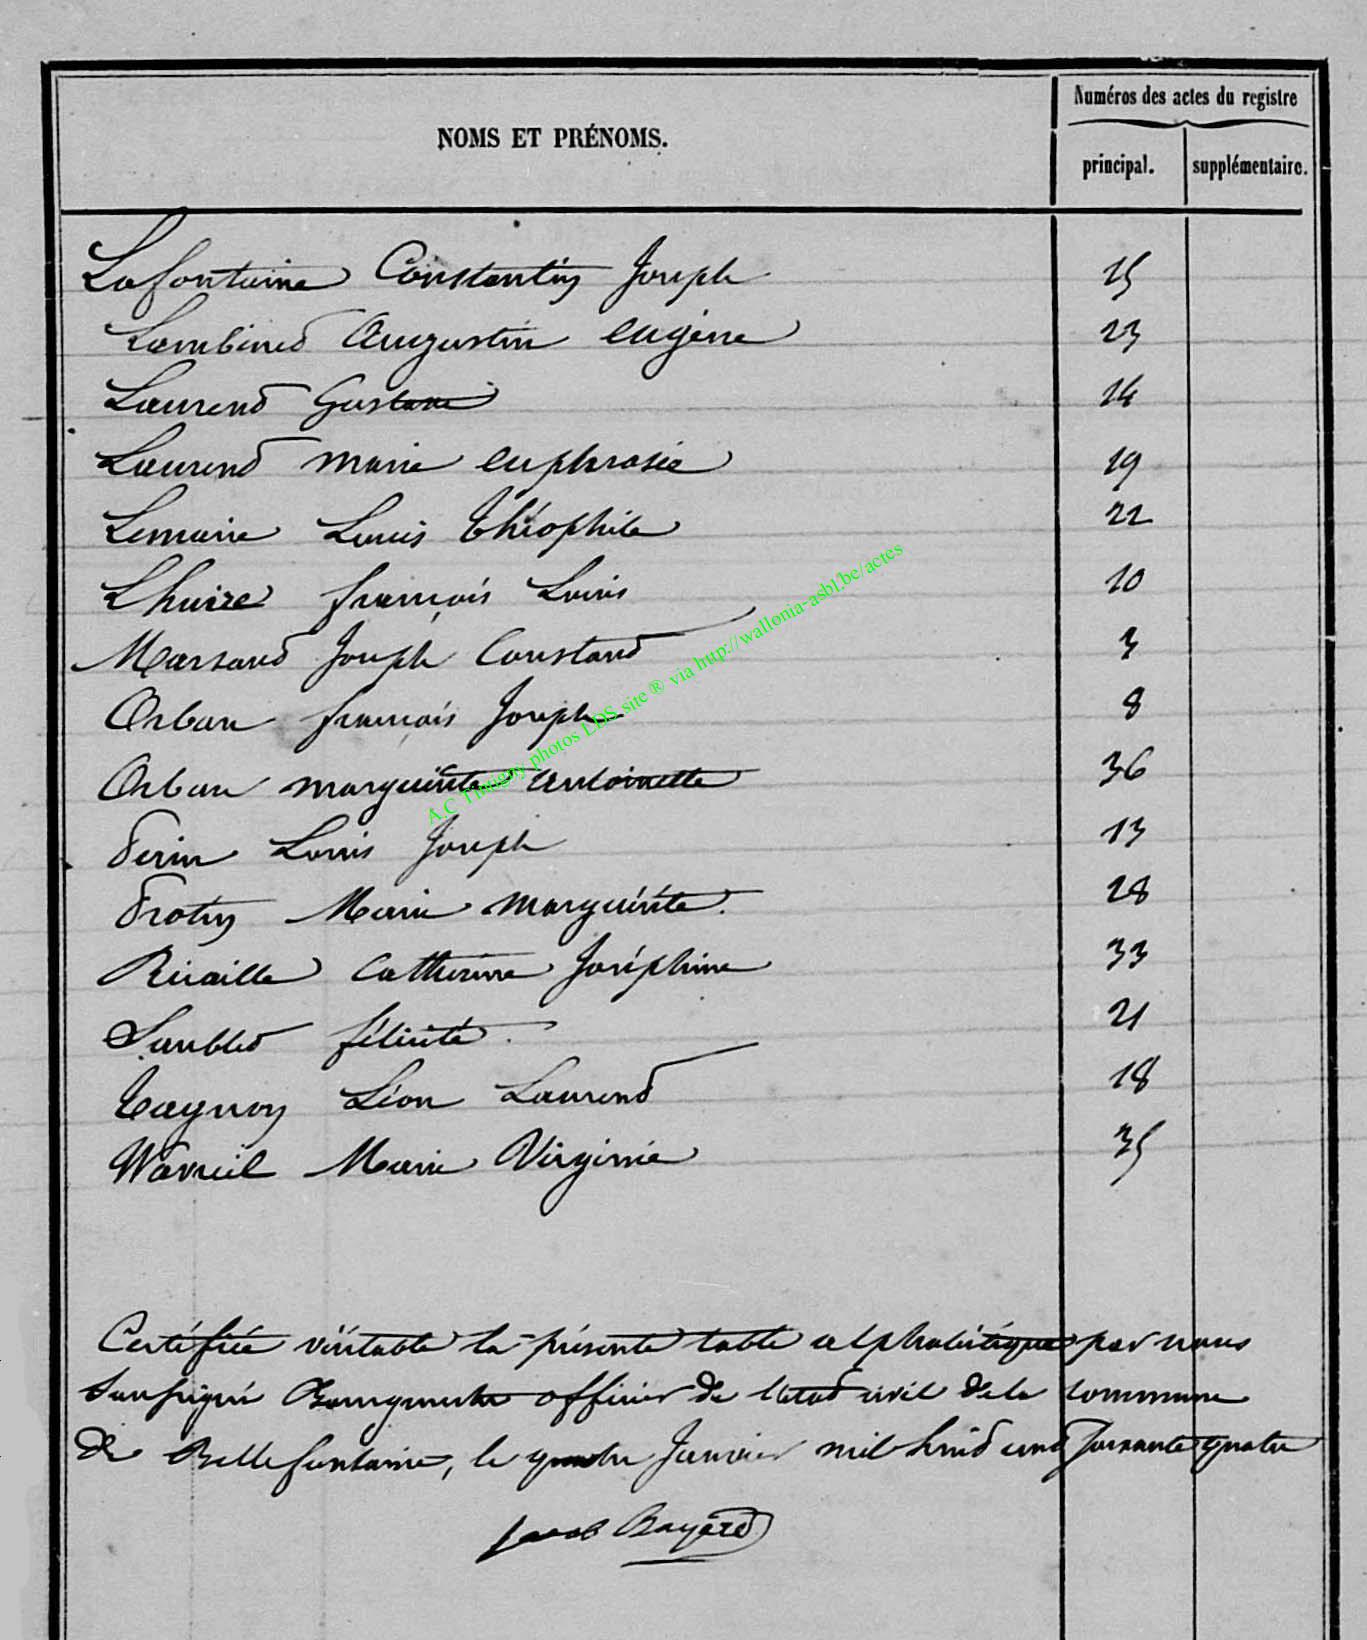 Numéros des actes du registre
NOMS ET PRÉNOMS.
principal. supplémentaire.
Lafontaine Constantin Joseph 15
Lambined Augustin eugène 23
Laurend Gustave 14
Laurend marie euphrosie 19
Lemaire Louis théophile 22
Lhuire françois Louis 10
Marsand Joseph Constand 3
Orban françois Joseph 8
Orban marguérite antoinette 36
Perin Louis Joseph 13
Protin Marie marguérite. 28
Ricaille Catherine Joséphine 33
Saubled félicité. 21
Tagnon Léon Laurend 18
Wavreil Marie Virginie 35
A.C Tintigny photos LDS site ® via http://wallonia-asbl.be/actes
Certéfiée véritable la présente table alphabétique par nous
Soussigné Bourgmestre officier de l'étad civil de la commune
de Bellefontaine, le quatre Janvier mil huid cend soixante quatre
Jacob Bayard